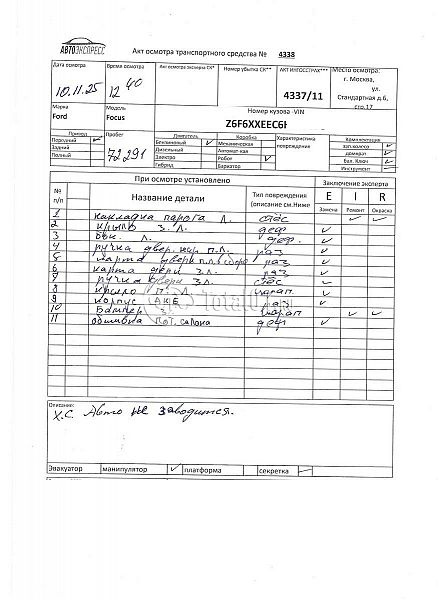 АВТОЭКСПРЕСС
Акт осмотра транспортного средства № 4338
Дата осмотра Время осмотра Акт осмотра эксперта СК* Номер убытка СК** АКТ ИНГОССТРАХ*** Место осмотра:
г. Москва,
ул.
Стандартная д.6,
стр.17
10.11.25 12 40 4337/11
Марка Модель Номер кузова -VIN
Ford Focus Z6F6XXEEC6
Привод Пробег Двигатель Коробка Характеристика повреждения Комплектация
Передний Бензиновый Механическая зап.колесо
Задний 72291 Дизельный Автомат-кая домкрат
Полный Электро Робот Бал. Ключ
Гибрид Вариатор Инструмент
При осмотре установлено Заключение эксперта
№ п/п Название детали Тип повреждения (описание см.Ниже E I R
Замена Ремонт Окраска
1 накладка порога Л.
2 крыло З. Л. деф
3 Бок. Л. деф.
4 ручка двер. п.л. раз
5 карта двери п.л. раз
6 карта двери З.л. раз
7 ручка двери З л.
8 крыло П. Л. царап
9 корпус АКБ
10 Бампер З. царап
11 обшивка пот. салона деф
TotalCar
Описание:
Х.С. Авто не заводится.
Эвакуатор манипулятор платформа секретка